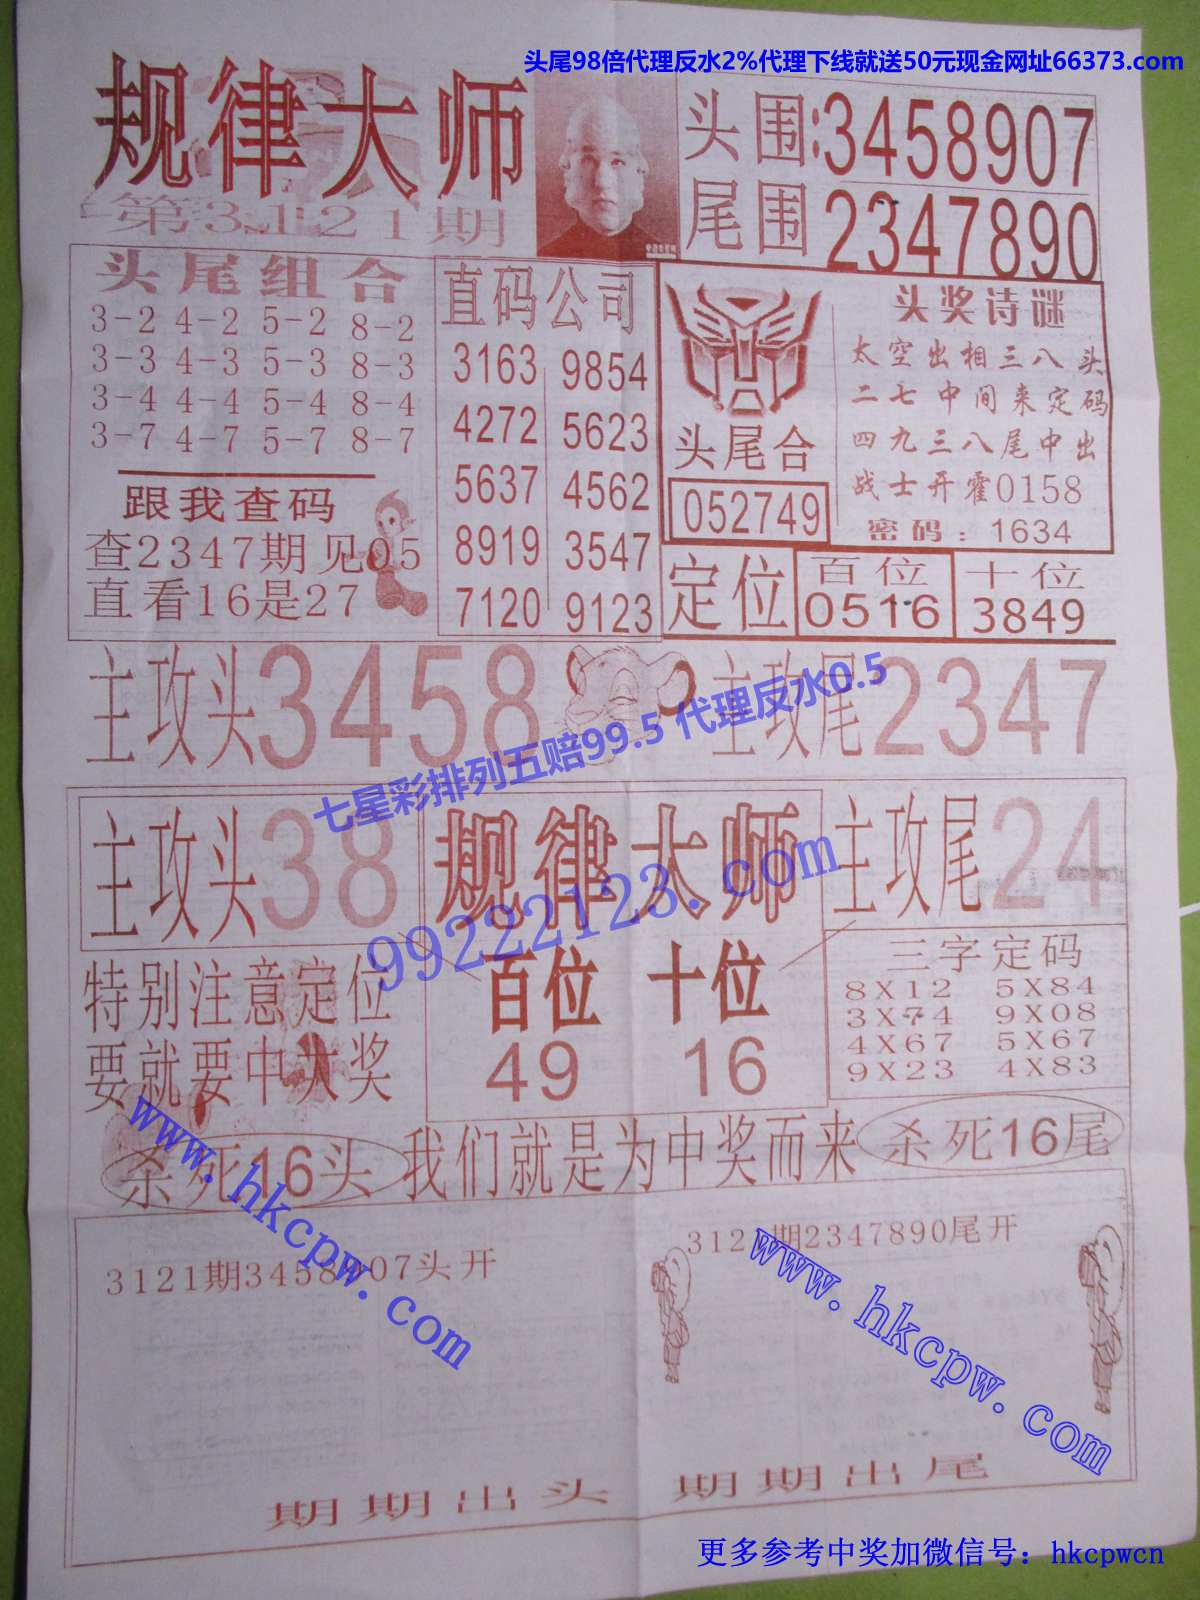 头尾98倍代理反水2%代理下线就送50元现金网址66373.com
规律大师
第3121期
头围:3458907
尾围2347890
头尾组合
3-2 4-2 5-2 8-2
3-3 4-3 5-3 8-3
3-4 4-4 5-4 8-4
3-7 4-7 5-7 8-7
跟我查码
查2347期见05
直看16是27
直码公司
3163 9854
4272 5623
5637 4562
8919 3547
7120 9123
头尾合
052749
头奖诗谜
太空出相三八头
二七中间来定码
四九三八尾中出
战士开霍0158
密码：1634
定位
百位
0516
十位
3849
主攻头3458
主攻尾2347
七星彩排列五赔99.5 代理反水0.5
主攻头38
规律大师
主攻尾24
99222123.com
特别注意定位
要就要中大奖
百位 十位
49 16
三字定码
8X12 5X84
3X74 9X08
4X67 5X67
9X23 4X83
杀死16头
我们就是为中奖而来
杀死16尾
www.hkcpw.com
3121期3458907头开
3121期2347890尾开
www.hkcpw.com
期期出头 期期出尾
更多参考中奖加微信号：hkcpwcn